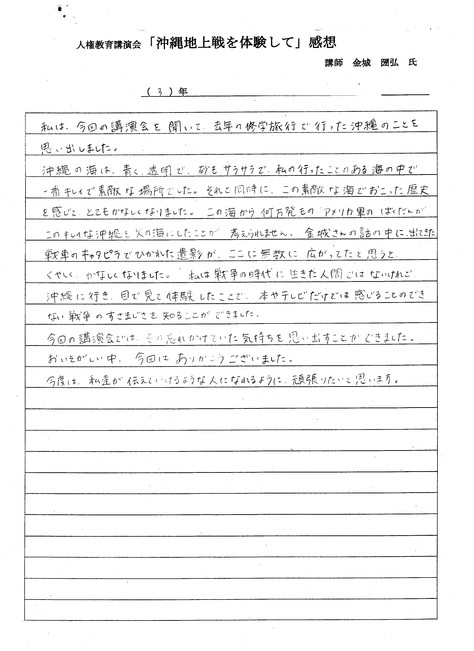 人権教育講演会「沖縄地上戦を体験して」感想
講師 金城 弘 氏
(3)年
私は、今回の講演会を聞いて、去年の修学旅行で行った沖縄のことを
思い出しました。
沖縄の海は、青く、透明で、砂もサラサラで、私の行ったことのある海の中で
一番キレイで素敵な場所でした。それと同時に、この素敵な海でおこった歴史
を感じて、とてもかなしくなりました。この海から何万発ものアメリカ軍のばくだんが
このキレイな沖縄を火の海にしたことが 考えられません。金城さんの話の中に出てきた
戦車のキャタピラでひかれた遺影が、ここに無数に広がってたと思うと
くやしく、かなしくなりました。 私は戦争の時代に生きた人間ではないけれど
沖縄に行き、目で見て体験したことで、本やテレビだけでは感じることのでき
ない戦争のすさまじさを知ることができました。
今回の講演会では、その忘れかけていた気持ちを思い出すことができました。
おいそがしい中、今回はありがとうございました。
今度は、私達が伝えていけるような人になれるように、頑張りたいと思います。